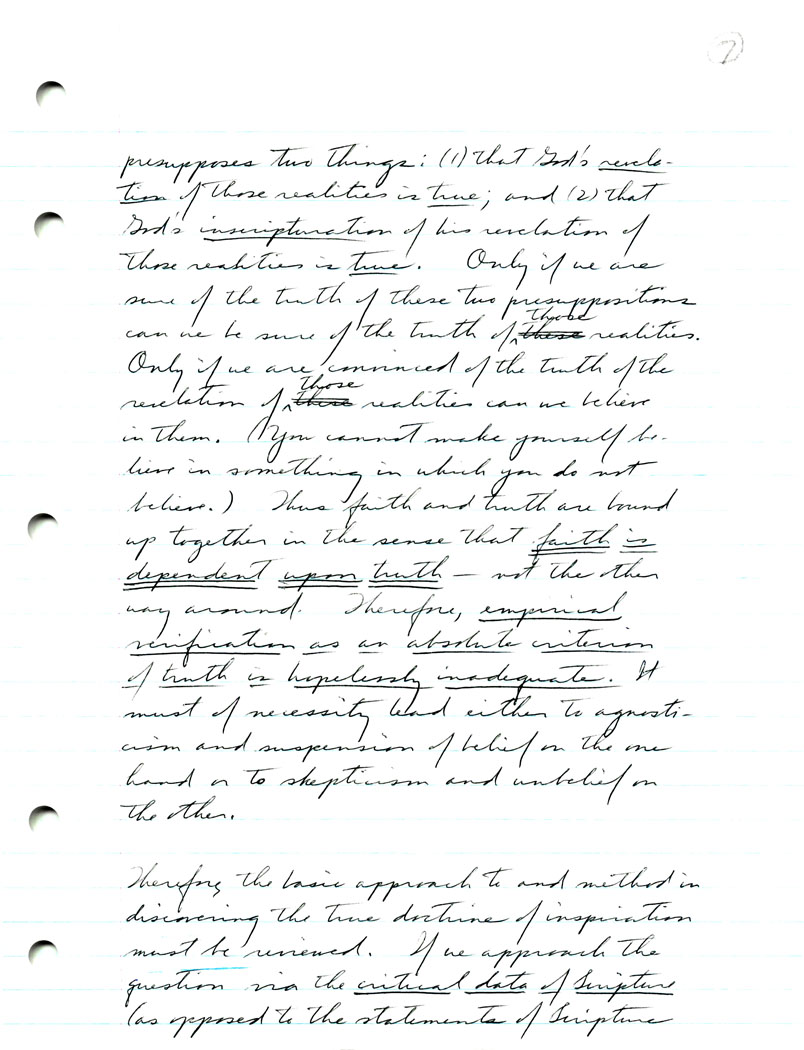 7
presupposes two things: (1) that God's revela-
tion of those realities is true; and (2) that
God's inscripturation of his revelation of
those realities is true. Only if we are
sure of the truth of these two presuppositions
those
can we be sure of the truth of ^ these realities.
Only if we are convinced of the truth of the
those
revelation of ^ these realities can we believe
in them. (You cannot make yourself be-
lieve in something in which you do not
believe.) Thus faith and truth are bound
up together in the sense that faith is
dependent upon truth — not the other
way around. Therefore, empirical
verification as an absolute criterion
of truth is hopelessly inadequate. It
must of necessity lead either to agnosti-
cism and suspension of belief on the one
hand or to skepticism and unbelief on
the other.
Therefore, the basic approach to and method in
discovering the true doctrine of inspiration
must be reviewed. If we approach the
question via the critical data of Scripture
(as opposed to the statements of Scripture